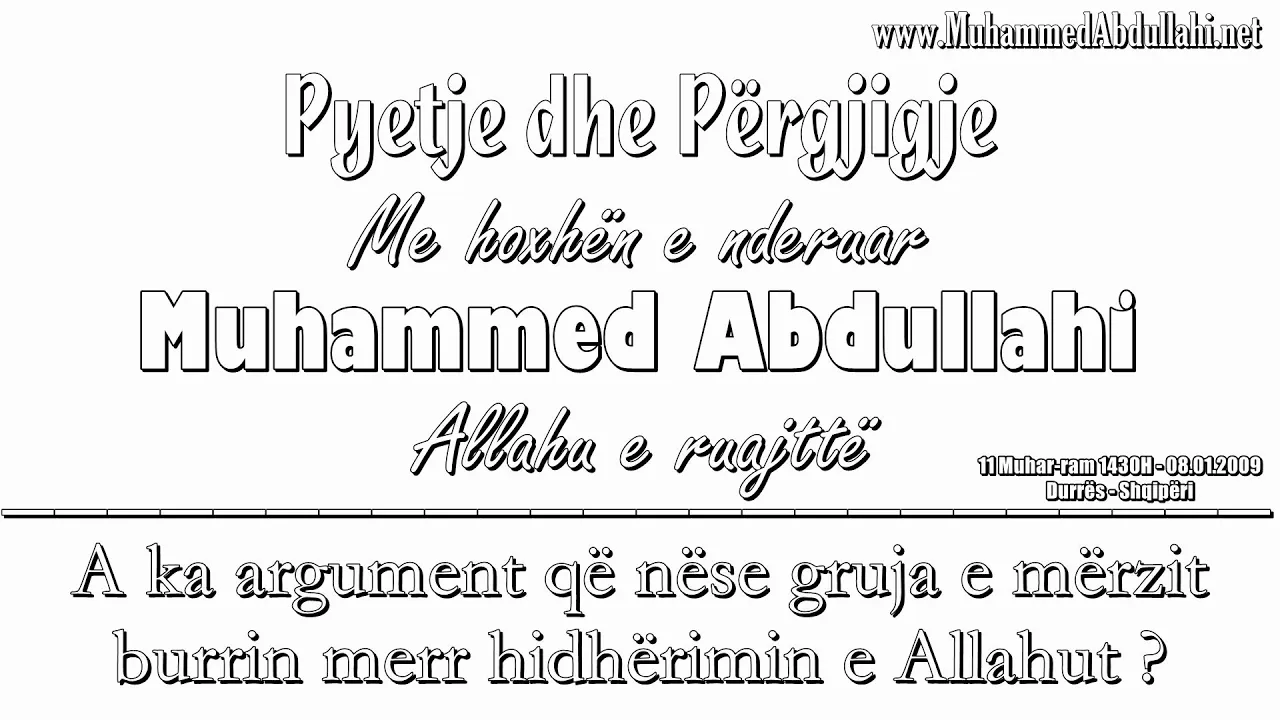 www.MuhammedAbdullahi.net
Pyetje dhe Përgjigje
Me hoxhën e nderuar
Muhammed Abdullahi
Allahu e ruajttë
11 Muhar-ram 1430H - 08.01.2009
Durrës - Shqipëri
A ka argument që nëse gruja e mërzit
burrin merr hidhërimin e Allahut ?